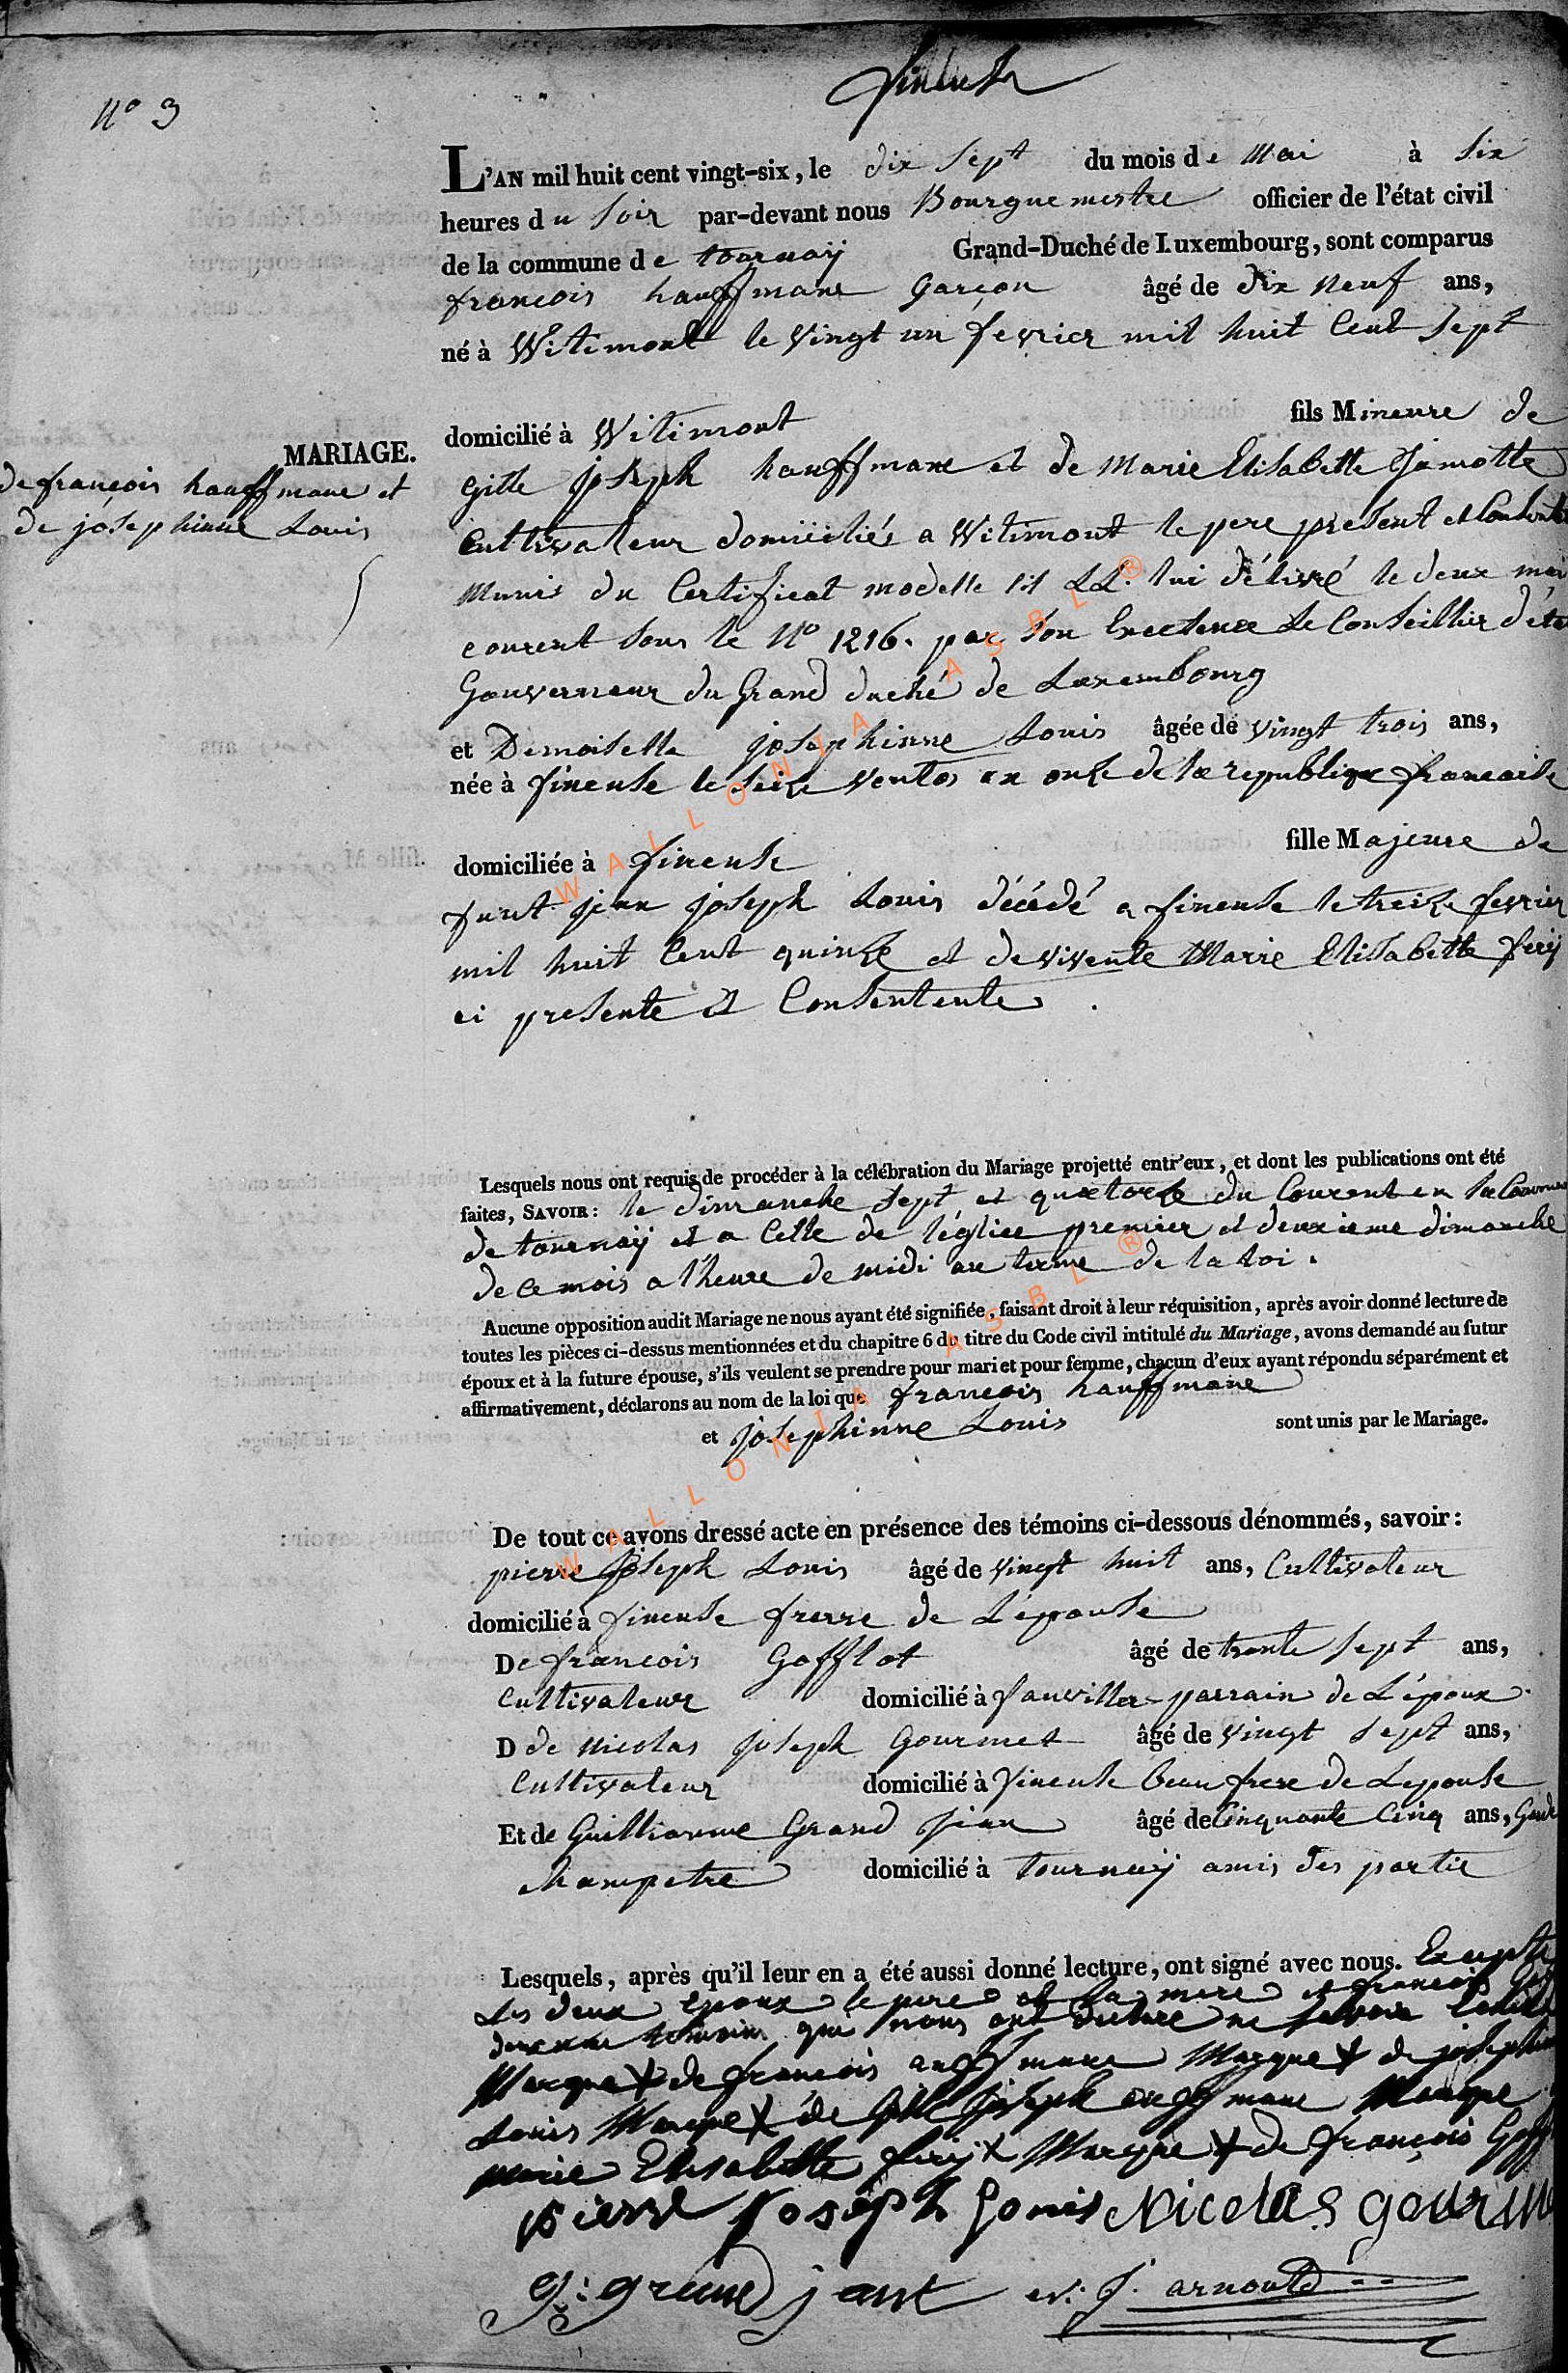 fineuse
N° 3
L'AN mil huit cent vingt-six, le dix Sept du mois de Mai à Six
heures du Soir par-devant nous Bourguemestre officier de l'état civil
de la commune de tournaÿ Grand-Duché de Luxembourg, sont comparus
francois hauffmane Garçon âgé de dix neuf ans,
né à Witimont le Vingt un fevrier mil huit Cent Sept
domicilié à Witimont fils Mineure de
MARIAGE.
de francois hauffmane et
de josephinne Louis
Gille joseph hauffmane et de Marie Elisabette Jamotte
Cultivateur domiciliés a Witimont le pere present et
Munis du Certificat modelle LL. lui délivré le deux mai
courent sous le N° 1216. par Son Excelence Le Conseillier d'état
Gouverneur du Grand duché de Luxembourg
et Demoiselle josephinne Louis âgée de Vingt trois ans,
née à fineuse le Seize Ventos an onze de la republique francaise
domiciliée à fineuse fille Majeure de
jean joseph Louis décédé a fineuse le treize fevrier
mil huit Cent quinze et de vivente Marie Elisabette firÿ
ci presente et Consentente
Lesquels nous ont requis de procéder à la célébration du Mariage projetté entr'eux, et dont les publications ont été
faites, SAVOIR: le dimanche Sept et quatorze du Courent en la Commune
de tournaÿ et a Celle de l'églice premier et deuxieme dimanche
de ce mois a l'heure de midi au terme de la Loi.
Aucune opposition audit Mariage ne nous ayant été signifiée, faisant droit à leur réquisition, après avoir donné lecture de
toutes les pièces ci-dessus mentionnées et du chapitre 6 du titre du Code civil intitulé du Mariage, avons demandé au futur
époux et à la future épouse, s'ils veulent se prendre pour mari et pour femme, chacun d'eux ayant répondu séparément et
affirmativement, déclarons au nom de la loi que francois hauffmane
et josephinne Louis sont unis par le Mariage.
De tout ce avons dressé acte en présence des témoins ci-dessous dénommés, savoir:
pierre joseph Louis âgé de vingt huit ans, Cultivateur
domicilié à fineuse frerre de L'épouse
De francois Gofflot âgé de trente Sept ans,
Cultivateur domicilié à fauviller parrain de L'époux.
D de nicolas joseph Gourmet âgé de Vingt Sept ans,
Cultivateur domicilié à fineuse beau frere de Lepouse
Et de Guilliaume Grand jean âgé de Cinquante Cinq ans, Garde
Champetre domicilié à tournaÿ amis des partie
Lesquels, après qu'il leur en a été aussi donné lecture, ont signé avec nous. Excepté
Les deux Epoux le pere et la mere et francois
deuxieme temoin qui nous ont declaré ne Savoir
Marque de francois auffmane Marque de josephinne
Louis Marque de Gille joseph auffmane Marque
marie Elisabette firÿ Marque de françois
pierre Joseph Louis Nicolas
g: grand jean J. arnould
WALLONIA ASBL ®
WALLONIA ASBL ®